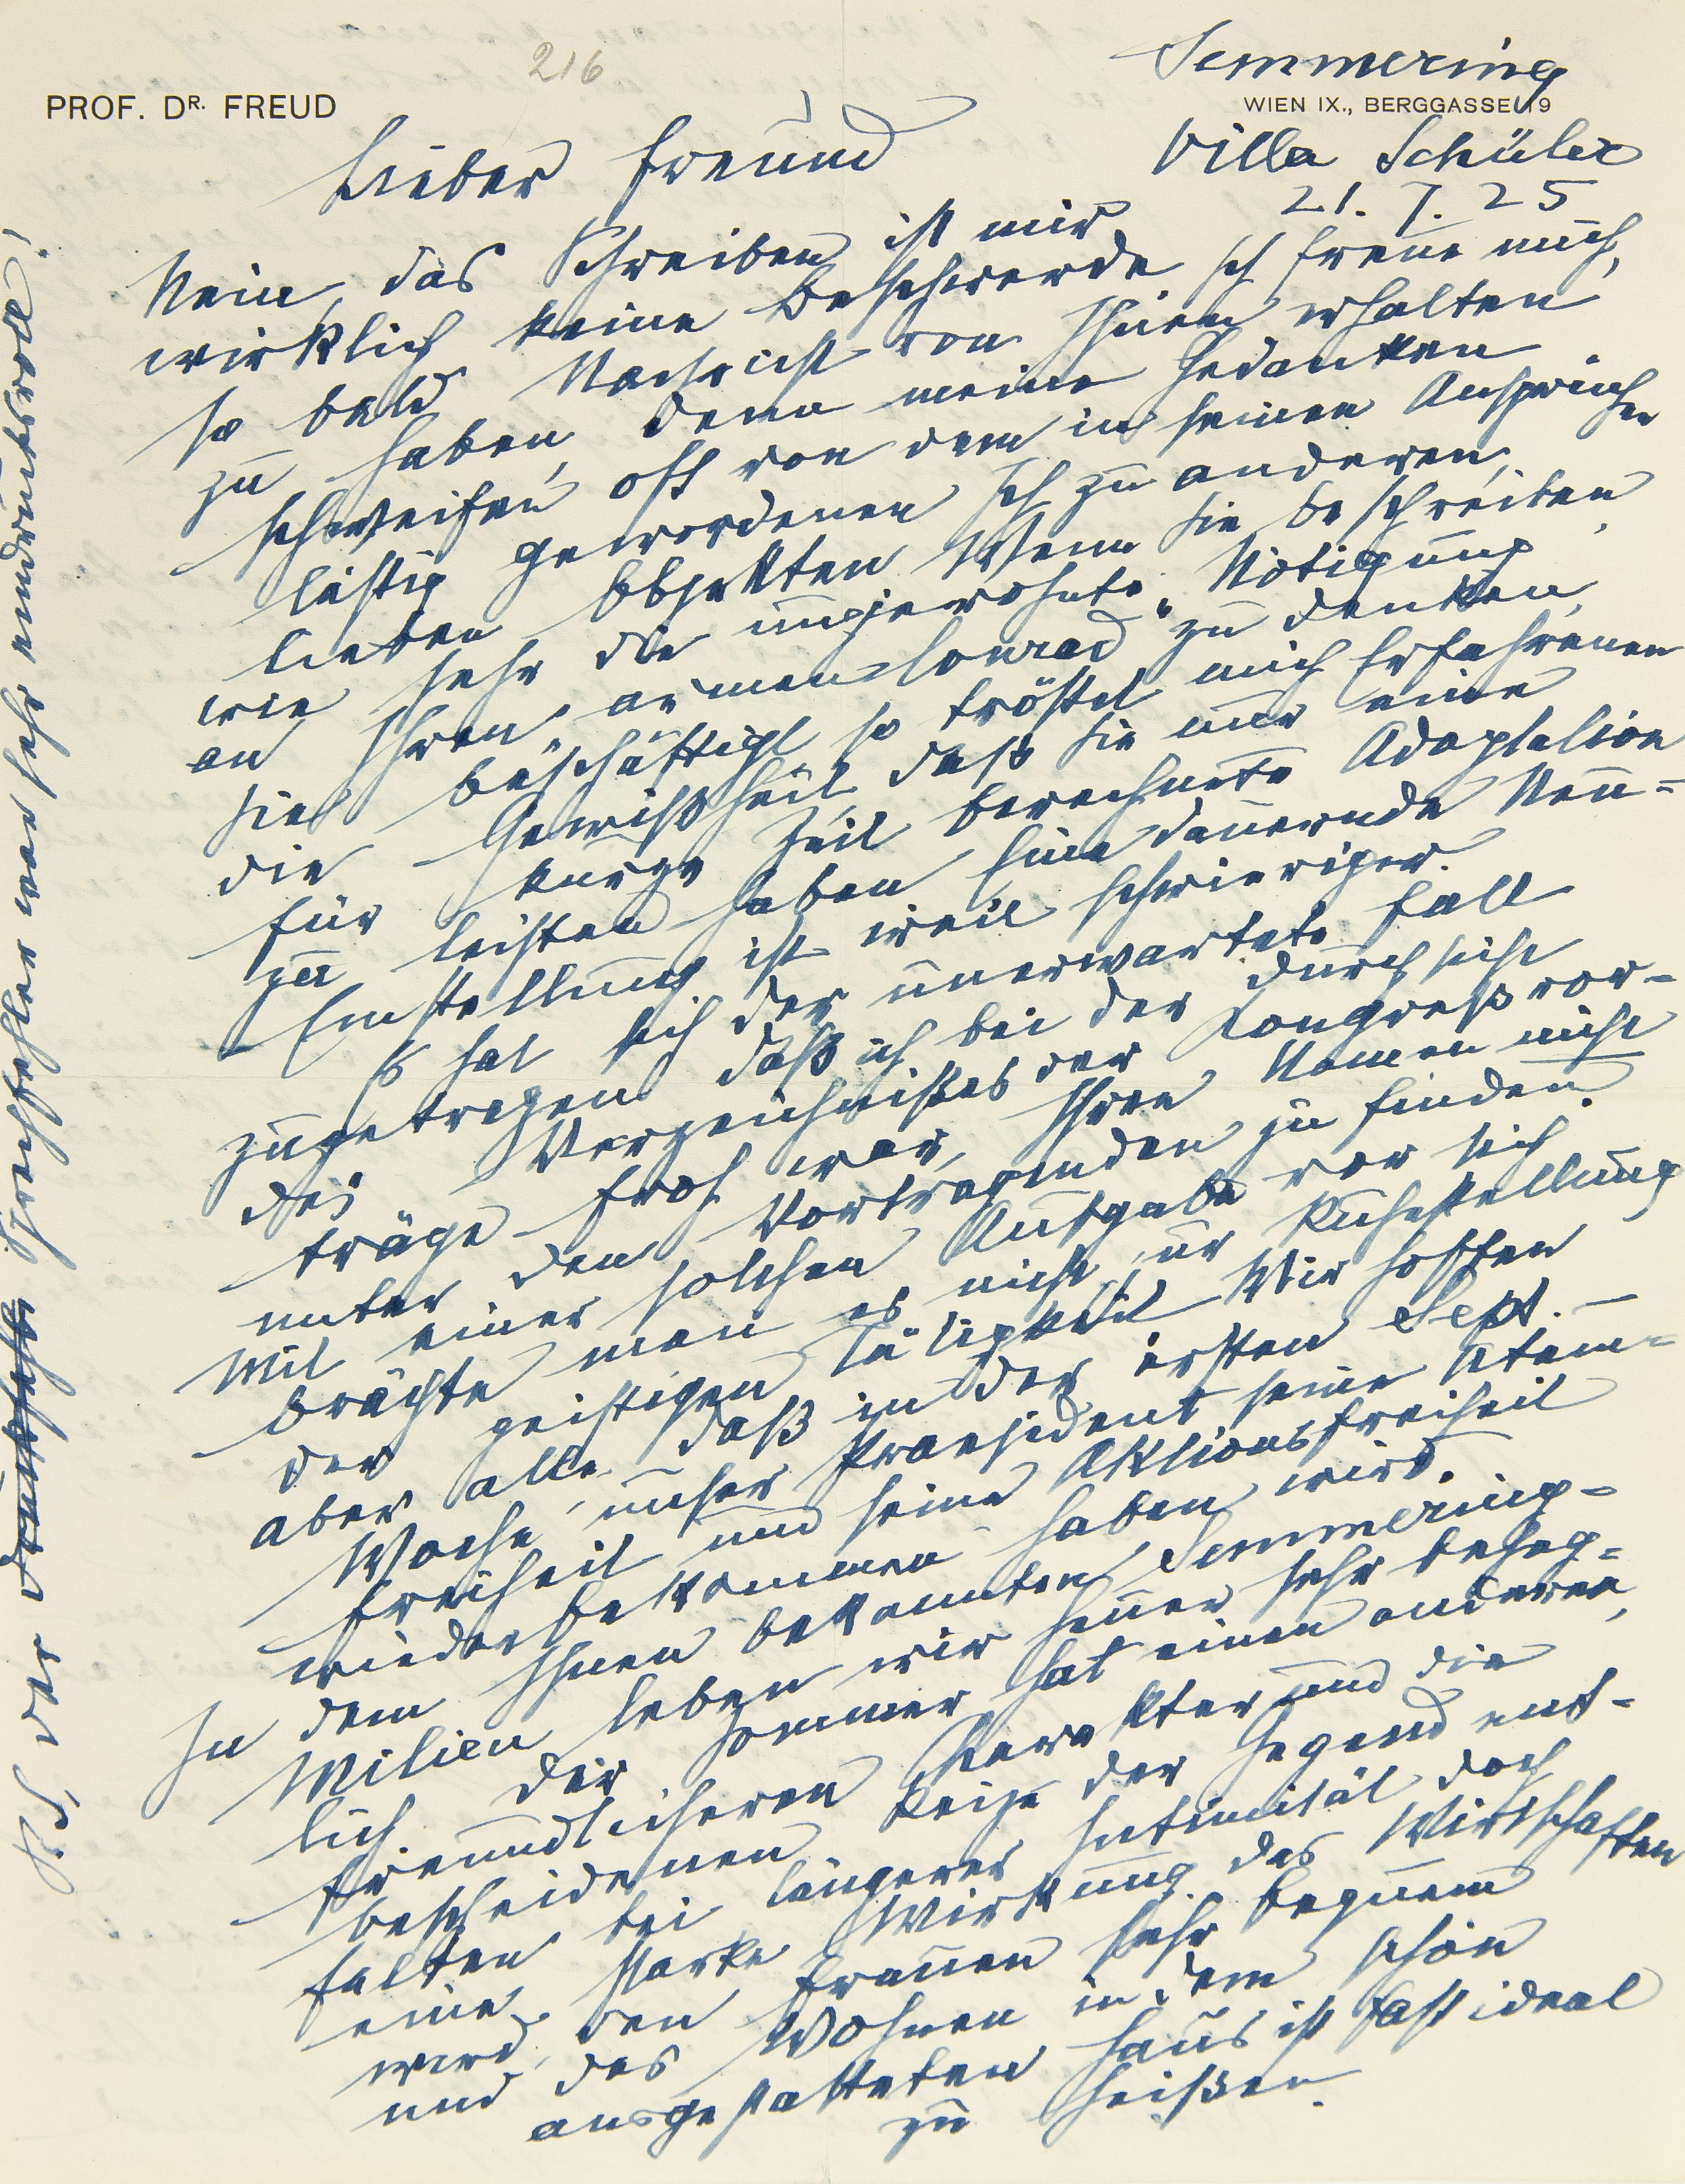 216
PROF. DR. FREUD
Semmering
WIEN IX., BERGGASSE 19
Villa Schüler
21. 7. 25
Lieber Freund
Nein, das Schreiben ist mir
wirklich keine Beschwerde. Ich freue mich,
so bald Nachricht von Ihnen erhalten
zu haben, denn meine Gedanken
schweifen oft von dem in seinen Ansprüchen
lästig gewordenen Ich zu anderen,
lieben Objekten. Wenn Sie beschreiben,
wie sehr die ungewohnte Nötigung
an Ihren „armen Konrad“ zu denken,
Sie beschäftigt, so tröstet mich Erfahrenen
die Gewißheit, daß Sie nur eine
für kurze Zeit berechnete Adaptation
zu leisten haben. Eine dauernde Neu-
Einstellung ist weit schwieriger.
Es hat sich der unerwartete Fall
zugetragen, daß ich bei der Durchsicht
des Verzeichnißes der Kongreßvor-
träge froh war, Ihren Namen nicht
unter den Vortragenden zu finden.
Mit einer solchen Aufgabe vor sich
brächte man es nicht zur Ruhestellung
der geistigen Tätigkeit. Wir hoffen
aber alle, daß in der ersten Sept. –
Woche unser Praesident seine Atem-
freiheit und seine Aktionsfreiheit
wiederbekommen haben wird.
In dem Ihnen bekannten Semmering-
Milieu leben wir heuer sehr behag-
lich. Der Sommer hat einen anderen,
freundlicheren Charakter und die
bescheidenen Reize der Gegend ent-
falten bei längerer Intimität doch
eine starke Wirkung. Das Wirtschaften
wird den Frauen sehr bequem
und das Wohnen in dem schön
ausgestatteten Haus ist fast ideal
zu heißen.
P.S. Der Sprechfehler war sehr eindrucksvoll!